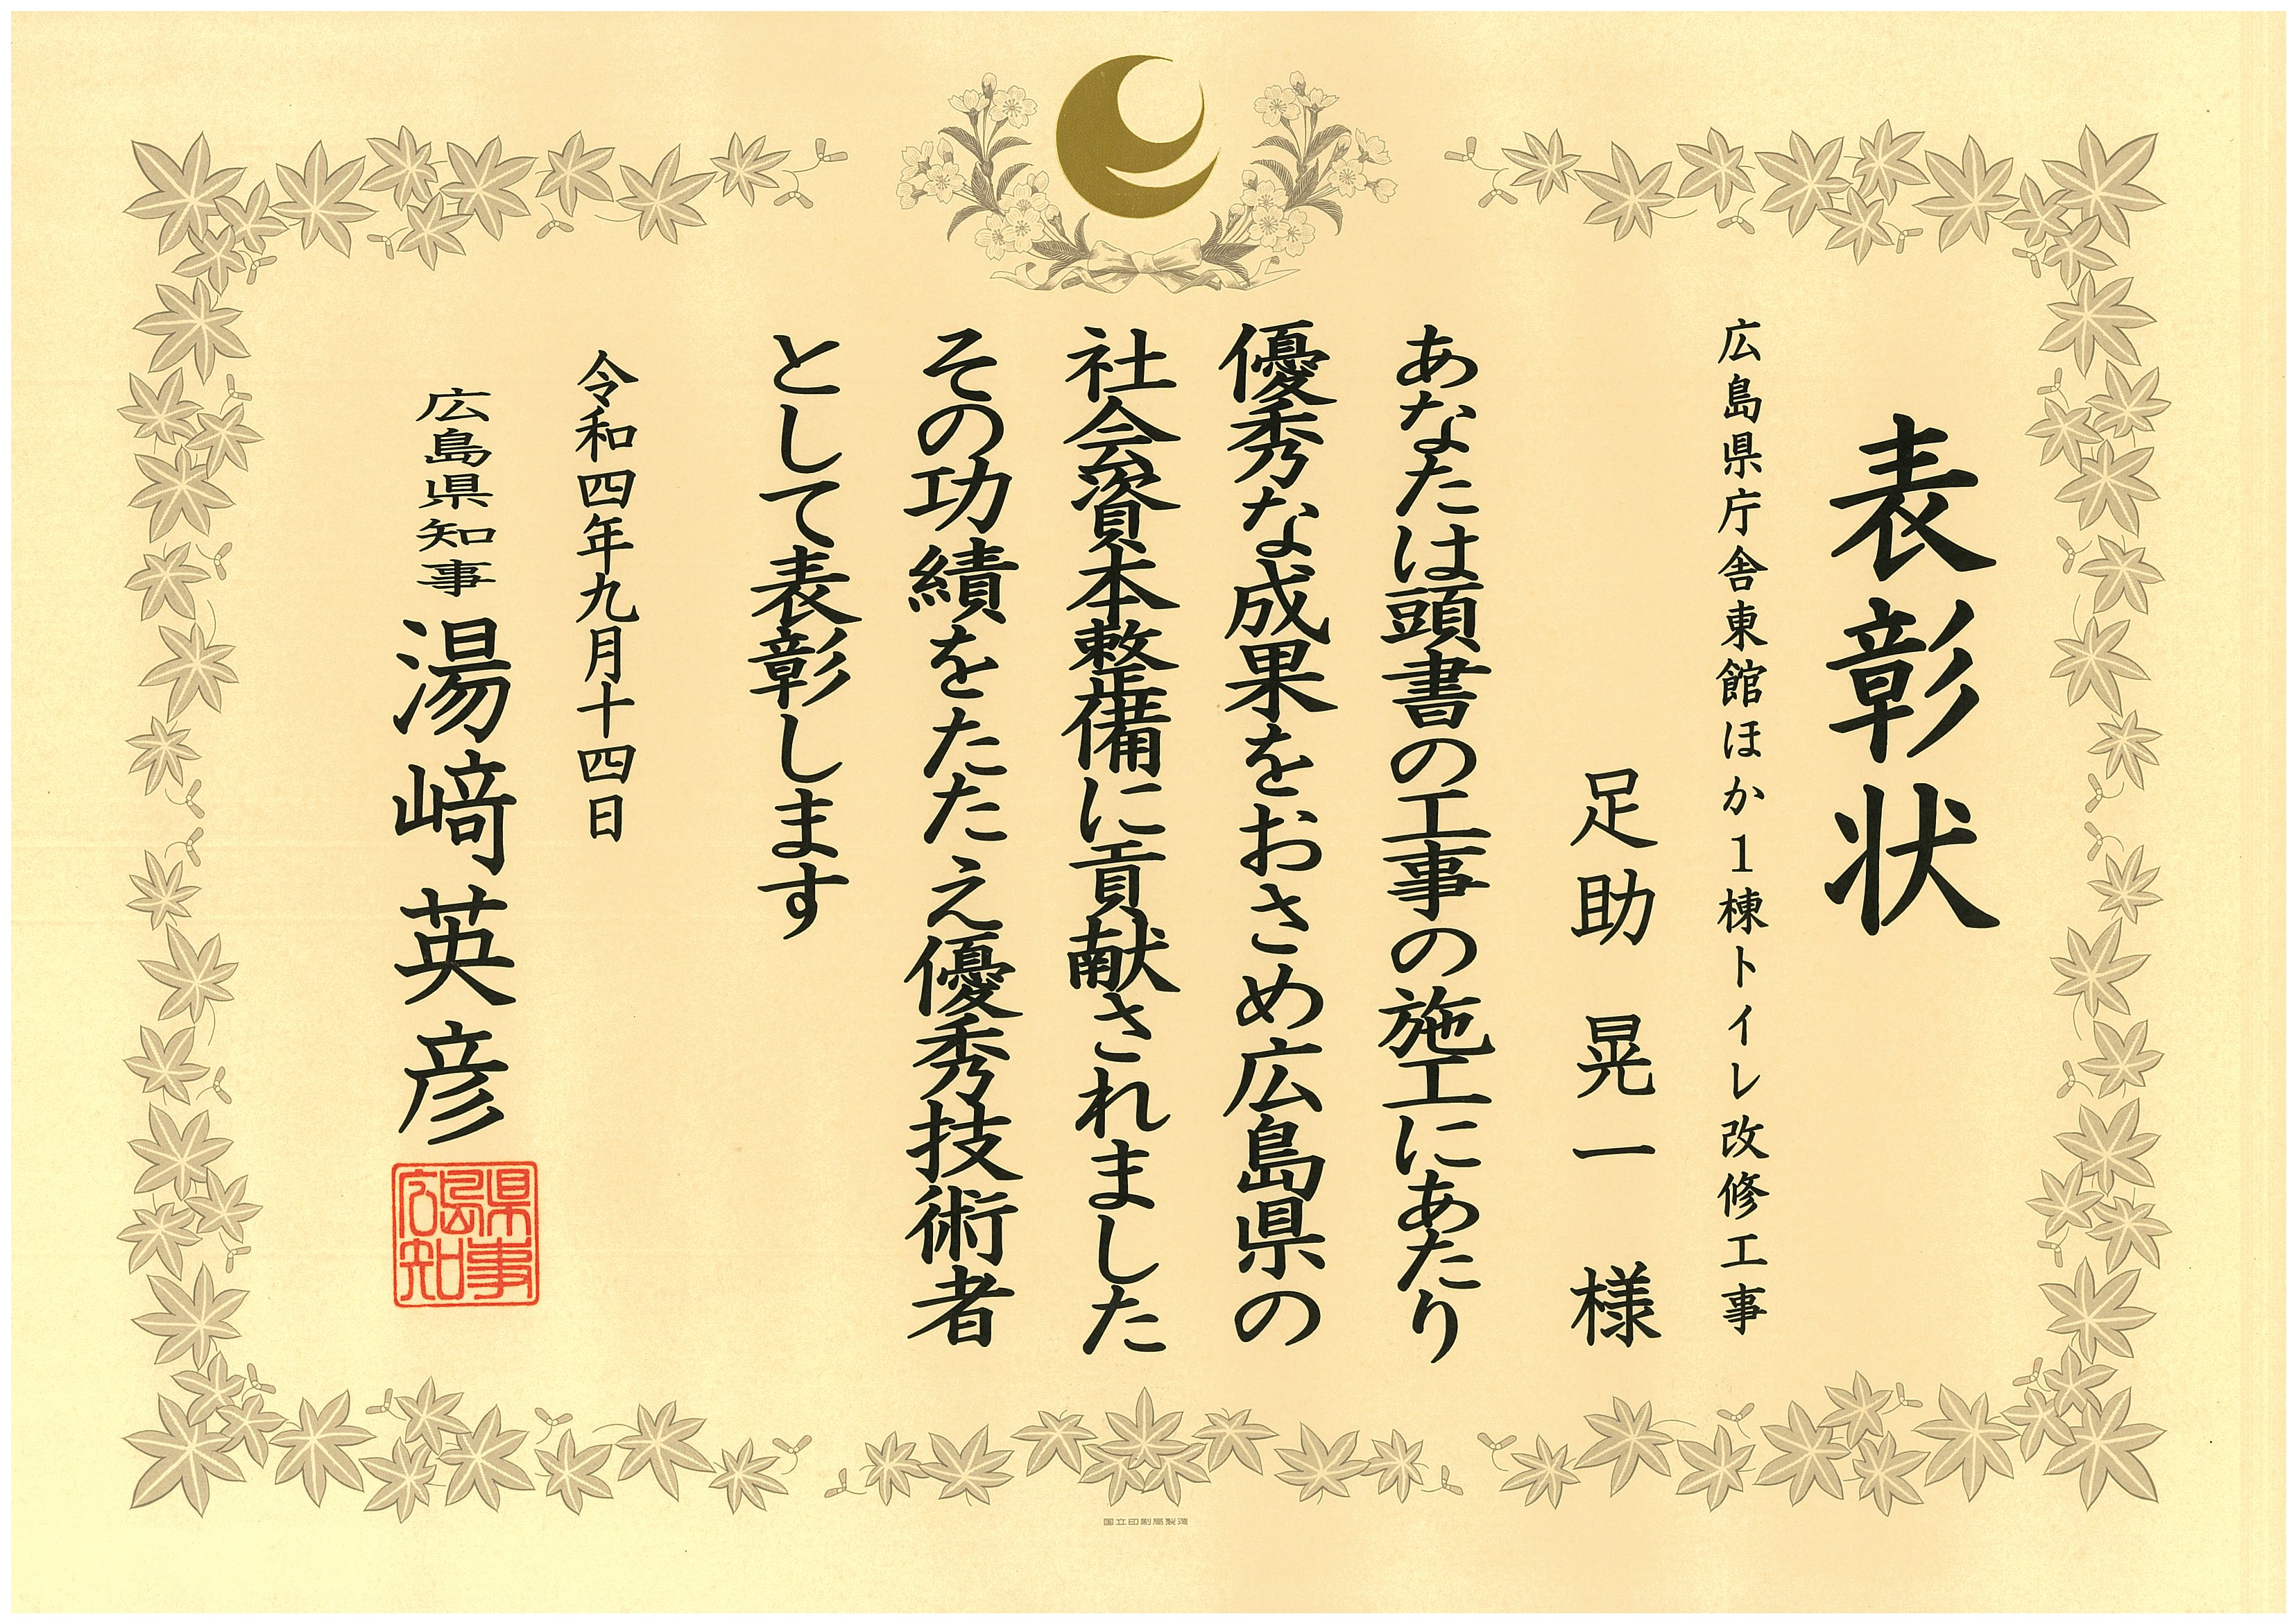 表彰状
広島県庁舎東館ほか1棟トイレ改修工事
足助 晃一 様
あなたは頭書の工事の施工にあたり
優秀な成果をおさめ広島県の
社会資本整備に貢献されました
その功績をたたえ優秀技術者
として表彰します
令和四年九月十四日
広島県知事 湯﨑英彦
広島県知事
国立印刷局製造